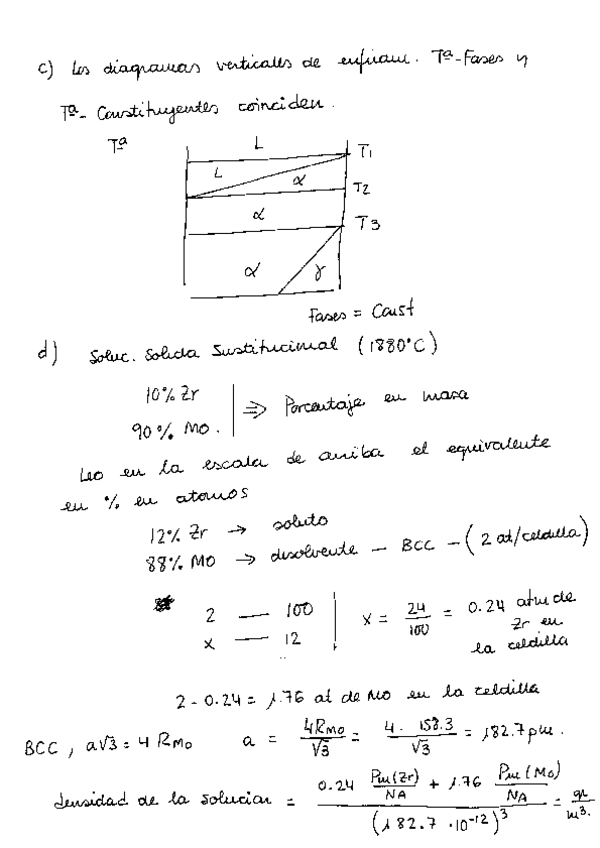 c) Los diagramas verticales de enfriam. Tª-Fases y
Tª- Constituyentes coinciden.
Tª
L
T1
L
α
T2
α
T3
α
γ
Fases = Const
d) Soluc. Solida Sustitucional (1880°C)
10% Zr
90% Mo.
⇒ Porcentaje en masa
Leo en la escala de arriba el equivalente
en % en atomos
12% Zr → soluto
88% Mo → disolvente - BCC - (2 at/celdilla)
2 — 100
x — 12
x = 24/100 = 0.24 atm de Zr en la celdilla
2 - 0.24 = 1.76 at de Mo en la celdilla
BCC, a√3 = 4 RMo a = 4RMo/√3 = 4. 158.3/√3 = 182.7 pm.
densidad de la solucion = (0.24 Pm(Zr)/NA + 1.76 Pm(Mo)/NA)/(182.7 · 10^-12)^3 = gr/m³.